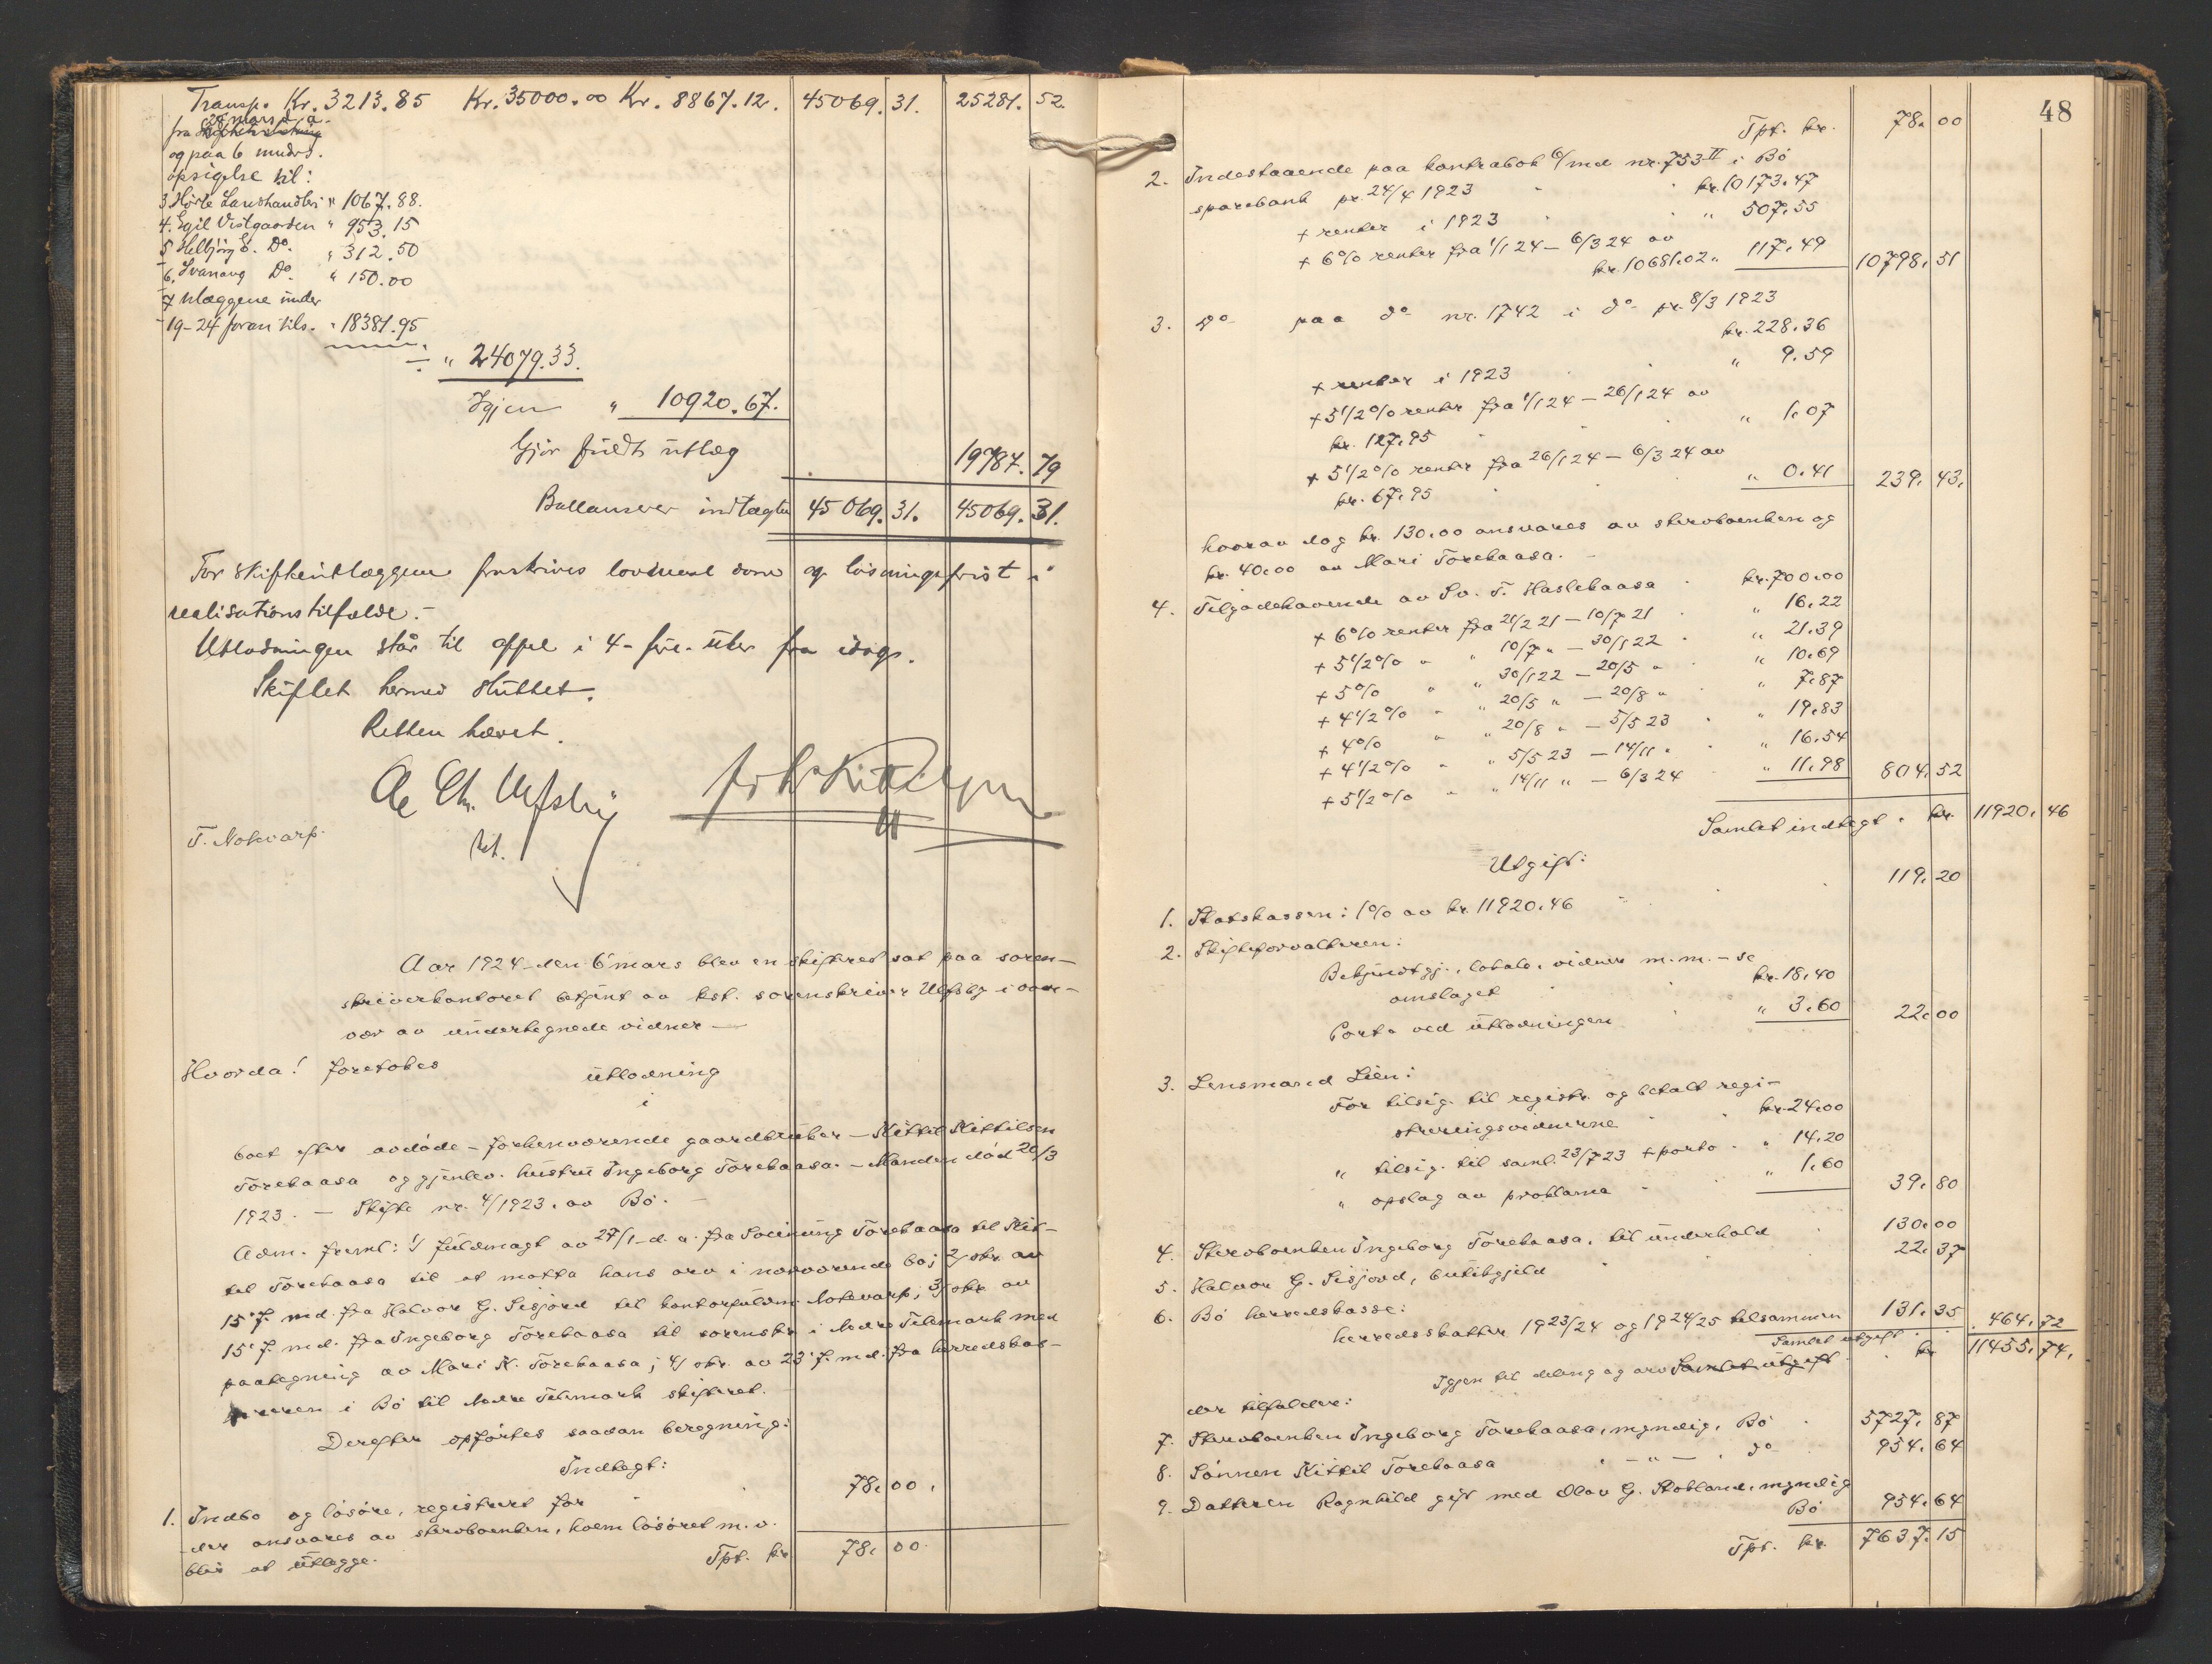 Transp. Kr. 3213.85 Kr. 35000.00 Kr. 8867.12. 45069.31. 25281.52.
28 mars d. a.
fra
og paa 6 mndrs.
opsigelse til:
3 Hørte Landhandleri " 1067.88.
4. Egil Vestgaarden " 953.15
5 Helbjørg E. Do. " 312.50
6. Svanaug Do. " 150.00
7 Utlæggene under
19-24 foran tils. " 18381.95
÷ " 24079.33.
Igjen " 10920.67.
Gjør fuldt utlæg 19787.79
Ballanserer indtægten 45069.31. 45069.31.
For skifteutlæggene foreskrives lovmæssl dom og løsningsfrist i
realisationstilfælde.-
Utlodningen står til appel i 4-fire-uker fra idag.
Skiftet hermed sluttet.
Retten hævet.
T. Notevarp.
kst.
Aar 1924 den 6 mars blev en skifteret sat paa soren-
skriverkontoret betjent av kst. sorenskriver Ulfsby i over-
vær av undertegnede vidner —
Hvorda! foretokes
utlodning
i
boet efter avdøde - forhenværende gaardbruker - Kittil Kittilsen
Torebaasa og gjenlev. hustru Ingeborg Torebaasa. - Manden død 20/3
1923. - Skifte nr. 4/1923. av Bø. -
Adm. freml: 1/ fuldmagt av 27/1 d. a. fra Sveinung Torebaasa til Kit-
til Torebaasa til at motta hans arv i nærværende bo; 2/ skr. av
15' f. md. fra Halvor G. Sisjord til kontorfuldm. Notevarp; 3/ skr. av
15' f. md. fra Ingeborg Torebaasa til sorenskr. i Nedre Telemark med
paategning av Mari K. Torebaasa; 4/ skr. av 23' f. md. fra herredskas-
sereren i Bø til Nedre Telemark skifteret.
Derefter opførtes saadan beregning:
Indtægt:
1. Indbo og løsøre, registrert for 78.00.
der ansvares av sterboenken, hvem løsøret m. v.
blir at utlægge. Tpt. kr. 78.00.
48
Tpt. kr. 78.00
2. Indestaaende paa kontrabok 6/md nr. 753 II i Bø
sparebank pr. 24/4 1923 kr. 10173.47
+ renter i 1923 " 507.55
+ 6% renter fra 1/1 24 - 6/3 24 av
kr. 10681.02 " 117.49 10798.51
3. Do paa do nr. 1742 i do pr. 8/3 1923
kr. 228.36
+ renter i 1923 " 9.59
+ 5 1/2% renter fra 1/1 24 - 26/1 24 av
kr. 197.95 " 1.07
+ 5 1/2% renter fra 26/1 24 - 6/3 24 av
kr. 67.95 " 0.41 239.43.
hvorav dog kr. 130.00 ansvares av sterboenken og
kr. 40.00 av Mari Torebaasa.
4. Tilgodehavende av Sv. T. Haslebaasa kr. 700.00
+ 6% renter fra 21/2 21 - 10/7 21 " 16.22
+ 5 1/2% " " 10/7 " - 30/1 22 " 21.39
+ 5% " " 30/1 22 - 20/5 " " 10.69
+ 4 1/2% " " 20/5 " - 20/8 " " 7.87
+ 4% " " 20/8 " - 5/5 23 " 19.83
+ 4 1/2% " " 5/5 23 - 14/11 " " 16.54
+ 5 1/2% " " 14/11 " - 6/3 24 " 11.98 804.52
Samlet indtægt. kr. 11920.46
Utgift:
1. Statskassen: 1% av kr. 11920.46 119.20
2. Skifteforvalteren:
Bekjendtgj., lokale, vidner m.m. - se
omslaget kr. 18.40
Porto ved utlodningen " 3.60 22.00
3. Lensmand Lien:
For tilsig. til registr. og betalt regi-
streringsvidnerne kr. 24.00
" tilsig. til saml. 23/7 23 + porto " 14.20
" opslag av proklama " 1.60 39.80
4. Sterboenken Ingeborg Torebaasa, til underhold 130.00
5. Halvor G. Sisjord, butikgjeld 22.37
6. Bø herredskasse:
herredsskatter 1923/24 og 1924/25 tilsammen 131.35 464.72
Samlet utgift
Igjen til deling og arv Samlet utgift kr. 11455.74.
der tilfalder:
7. Sterboenken Ingeborg Torebaasa, myndig, Bø 5727.87
8. Sønnen Kittil Torebaasa - " - do 954.64
9. Datteren Ragnhild gift med Olav G. Stokland, myndig
Bø 954.64
Tpt. kr. 7637.15